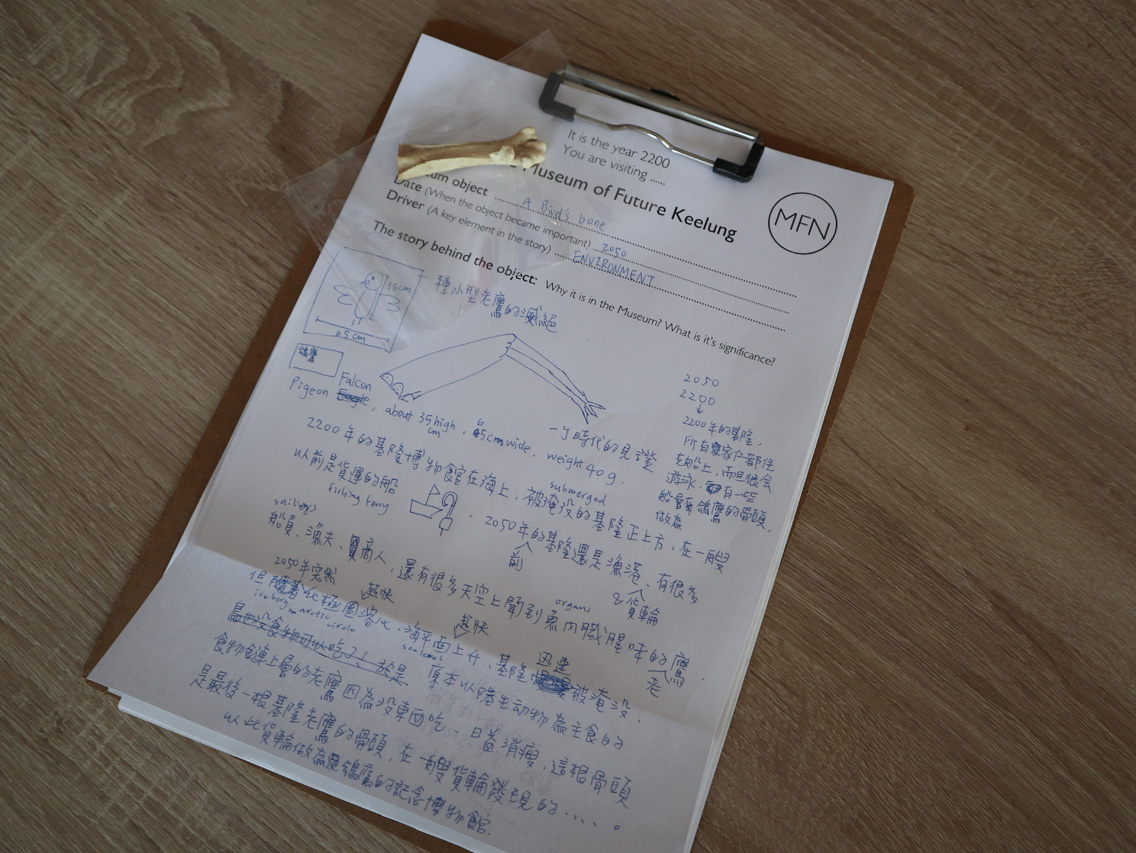 It is the year 2200
You are visiting .....
Museum of Future Keelung
MFN
um object A Bird's bone
Date (When the object became important) 2050
Driver (A key element in the story) ENVIRONMENT
The story behind the object: Why it is in the Museum? What is it's significance?
18cm
65cm
種小型老鷹的滅絕
鴿鷹
Falcon
Pigeon Eagle, about 35cm high, 65cm wide, weight 40g.
一個時代的見證
2050
2200
2200年的基隆,
所有家仁都住
在船上,而且很會
游泳,有一些
船會有鴿鷹的骨頭,
做為
2200年的基隆博物館在海上,被淹沒的基隆正上方,在一艘
submerged
以前是貨運的船
fishing ferry
, 2050年前的基隆還是漁港、有很多
sailors
船員、漁夫、商人,還有很多天空上聞到魚內臟腥味的老鷹.
organs
&貨輪
2050年突然
但隨著北極圈溶化越快、海平面上升越快、基隆迅速被淹沒,
iceberg in arctic circle
sealevel
鳥也沒食物可以吃了!於是 原本以陸生動物為主食的
食物鏈上層的老鷹因為沒東西吃,日暮消瘦,這根骨頭
是最後一根基隆老鷹的骨頭,在一艘貨輪發現的.....。
以此貨輪做為鴿鷹的記念博物館.